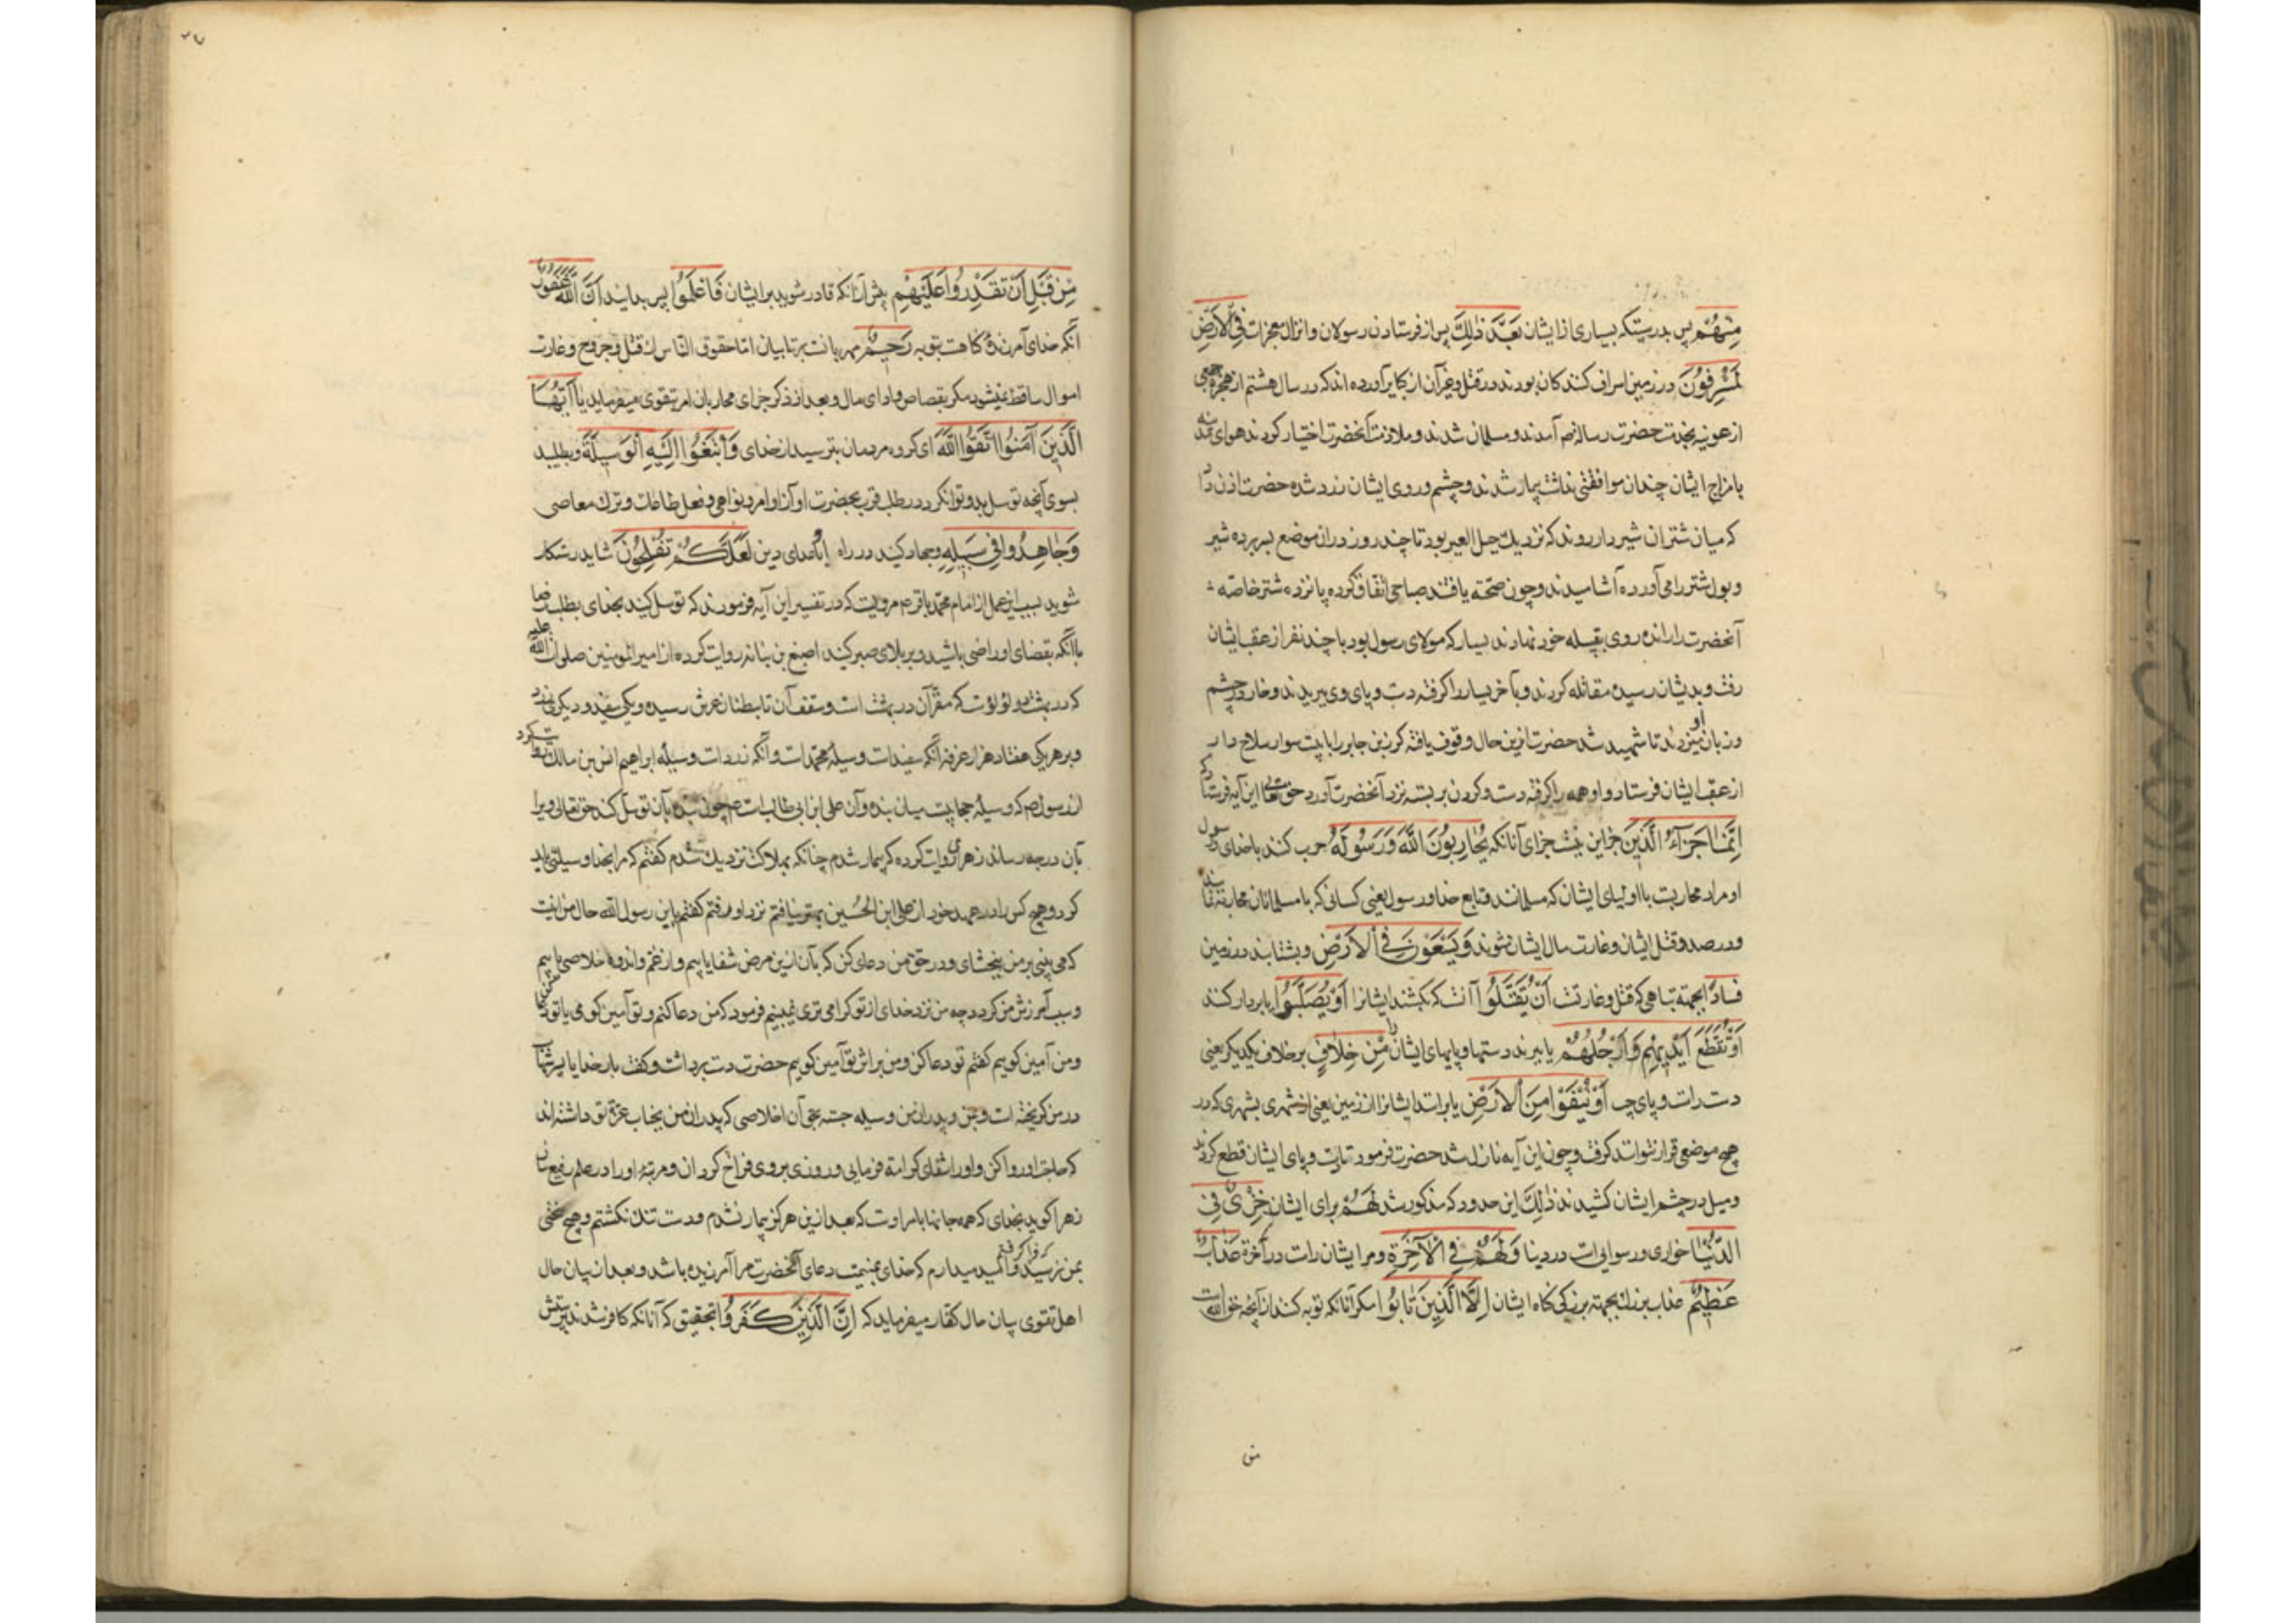 منهم پس بدرستیکه بسیاری از ایشان بعد ذلک پس از فرستادن رسولان و انزال معجزات فی الارض
لمسرفون در زمین اسراف کنندکان بودند در قتل و غیر آن از کبایر آورده اند که در سال هشتم از هجرة جمعی
از عونیه بخدمت حضرت رسالة ص آمدند و مسلمان شدند و ملازمت آنحضرت اختیار کردند هوای مدینه
با مزاج ایشان چندان موافقتی نداشت بیمار شدند و چشم و روی ایشان زرد شده حضرت اذن داد
که میان شتران شیردار روند که نزدیک جبل العیر بود تا چند روز در آن موضع بسر برده شیر
و بول شتر را می آورده آشامیدند و چون صحة یافتند صباحی اتفاق کرده پانزده شتر خاصه
آنحضرت را رانده روی بقبیله خود نهادند یسار که مولای رسول بود با چند نفر از عقب ایشان
رفت و بدیشان رسیده مقاتله کردند و بآخر یسار را کرفته دست و پای وی ببریدند و خار در چشم
و زبان او میزدند تا شهید شد حضرت ازین حال وقوف یافته کرز بن جابر را با بیست سوار سلاح دار
از عقب ایشان فرستاد و او همه را کرفته دست و کردن بر بسته نزد آنحضرت آورد حق تعالی این آیه فرستاد که
انما جزاء الذین جز این نیست جزای آنانکه یحاربون الله و رسوله حرب کنند با خدای و رسول
او مراد محاربت با اولیای ایشان که مسلمانند و تابع خدا و رسول یعنی کسانی که با مسلمانان محاربه نمایند
و در صدد قتل ایشان و غارت مال ایشان شوند و یسعون فی الارض و بشتابند در زمین
فسادا بجهة تباهی که قتل و غارتست ان یقتلوا آنست که بکشند ایشانرا او یصلبوا یا بردار کنند
او تقطع ایدیهم و ارجلهم یا ببرند دستها و پایهای ایشان من خلاف بر خلاف یکدیکر یعنی
دست راست و پای چپ او ینفوا من الارض یا برانند ایشانرا از زمین یعنی از شهری بشهری که در
هیچ موضعی قرار نتوانند کرفت و چون این آیه نازل شد حضرت فرمود تا دست و پای ایشان قطع کردند
و میل در چشم ایشان کشیدند ذلک این حدود که مذکور شد لهم برای ایشان خزی فی
الدنیا خواری و رسوایی است در دنیا و لهم فی الآخرة و مر ایشان راست در آخرة عذاب
عظیم عذاب بزرک بجهة بزرکی کناه ایشان الا الذین تابوا مکر آنانکه توبه کنند از آنچه حق الله است
من
من قبل ان تقدروا علیهم پیش از آنکه قادر شوید بر ایشان فاعلموا پس بدانید ان الله غفور
آنکه خدای آمرزندۀ کناهست بتوبه رحیم مهربانست بر تایبان اما حقوق الناس از قتل و جروح و غارت
اموال ساقط نمیشود مکر بقصاص و ادای مال و بعد از ذکر جزای محاربان امر بتقوی میفرماید یا ایها
الذین آمنوا اتقوا الله ای کروه مردمان بترسید از خدای و ابتغوا الیه الوسیلة و بطلبید
بسوی آنچه توسل بدو توان کرد در طلب قرب بحضرت او از اوامر و نواهی و فعل طاعات و ترک معاصی
و جاهدوا فی سبیله و جهاد کنید در راه او با اعدای دین لعلکم تفلحون شاید رستکار
شوید بسبب این عمل از امام محمد باقر ع مرویست که در تفسیر این آیه فرمودند که توسل کنید بخدای بطلب رضا
با آنکه بقضای او راضی باشید و بر بلای صبر کنید اصبغ بن نباته روایت کرده از امیر المومنین صلوات الله علیه
که در بهشت دو لؤلؤست که مقر آن در بهشت است و سقف آن تا بطنان عرش رسیده و یکی سفید و دیکری زرد
و بر هر یکی هفتاد هزار غرفه آنکه سفیدست وسیلۀ محمدست و آنکه زردست وسیلۀ ابراهیم انس بن مالک روایت کرد
از رسول ص که وسیلۀ حجابیست میان بنده و آن علی ابن ابی طالب است ع چون بنده بآن توسل کند حق تعالی ویرا
بآن درجه رساند زهری روایت کرده که بیمار شدم چنانکه بهلاکت نزدیک شدم کفتم که مرا بخدا وسیلتی باید
کرد و هیچ کس را در عهد خود از علی ابن الحسین بهتر نیافتم نزد او رفتم کفتم یا بن رسول الله حال من اینست
که می بینی بر من ببخشای و در حق من دعای کن که بآن ازین مرض شفا یابم و از غم و اندوه خلاصی یابم
و سبب آمرزش من کردد چه من نزد خدای از تو کرامی تری نمیبینم فرمود که من دعا کنم و تو آمین کوی یا تو دعا
و من آمین کویم کفتم تو دعا کن و من بر اثر تو آمین کویم حضرت دست برداشت و کفت بار خدایا پسر شهاب
در من کریخته است و بمن و پدران من وسیله جسته بحق آن اخلاصی که پدران من بجناب عزة تو داشته اند
که حاجت او روا کن و او را شفای کرامة فرمایی و روزی بر وی فراخ کردان و مرتبۀ او را در علم رفیع
زهرا کوید بخدای که همه جانها بامر اوست که بعد ازین هرکز بیمار نشدم و دست تنک نکشتم و هیچ سختی
بمن نرسید و امید میدارم که خدای بیمنت دعای آنحضرت مرا آمرزیده باشد و بعد از بیان حال
اهل تقوی بیان حال کفار میفرماید که ان الذین کفروا بتحقیق که آنانکه کافر شدند